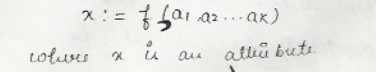 x := f (a1, a2 ... ak)
where x is an attribute